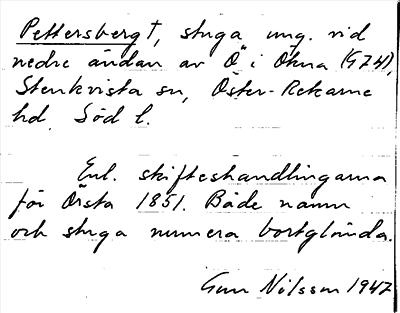 Pettersberg †, stuga ung. vid
nedre ändan av Ö i Ökna (G74),
Stenkvista sn, Öster-Rekarne
hd, Söd l.
Enl. skifteshandlingarna
för Örsta 1851. Både namn
och stuga numera bortglömda.
Gun Nilsson 1947